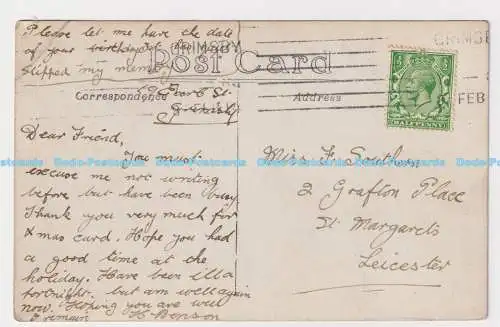 Please let me have the date
of your birthday as it has
slipped my memory
GRIMSBY
GRIMSBY
FEB
Post Card
Correspondence
Address
HALFPENNY
George St
Grimsby
Dear Friend,
You must
excuse me not writing
before but have been busy.
Thank you very much for
Xmas card. Hope you had
a good time at the
holiday. Have been ill a
fortnight. but am well again
now. Hoping you are well
I remain H Benson
Miss F. Southern
2 Grafton Place
St. Margarets
Leicester
Dodo-Postcards Dodo-Postcards Dodo-Postcards Dodo-Postcards Dodo-Postcards